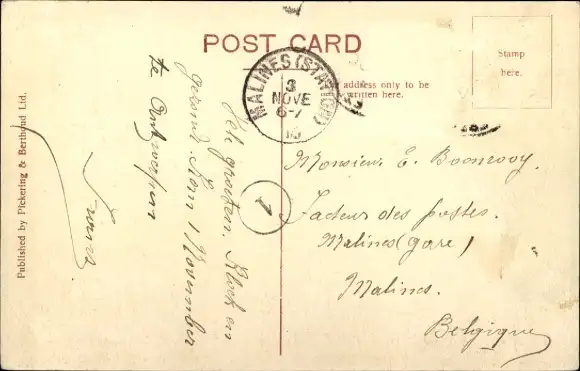 POST CARD
Stamp
here.
The address only to be
written here.
MALINES (STATION)
3
NOVE
6-7
10
Monsieur E. Boonrooy.
Facteur des postes.
Malines (gare)
Malines.
Belgique
1
groeten. Kloek en
gezond. Kom 1 November
te Antwerpen
Frans
Published by Pickering & Berthoud Ltd.